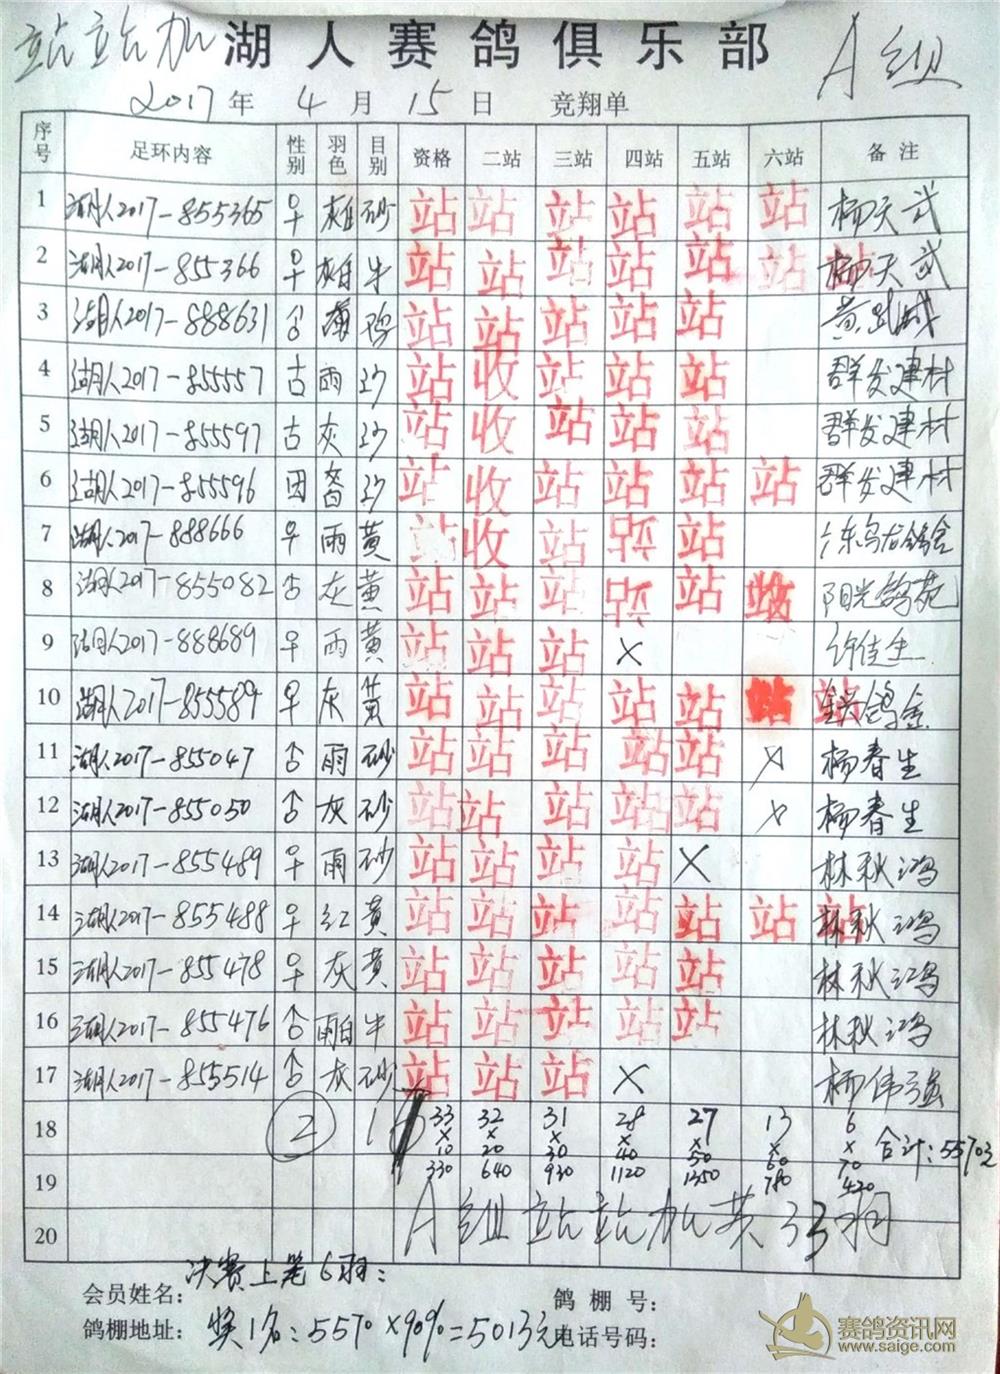 站站加 湖人赛鸽俱乐部 A组
2017年 4月 15日 竞翔单
序号 足环内容 性别 羽色 目别 资格 二站 三站 四站 五站 六站 备注
1 湖人2017-855365 ♀ 砂 站 站 站 站 站 站 杨天武
2 湖人2017-855366 ♀ 牛 站 站 站 站 站 站 站 杨天武
3 湖人2017-888631 站 站 站 站 站 黄
4 湖人2017-855557 雨 沙 站 收 站 站 站 群发建材
5 湖人2017-855597 灰 沙 站 收 站 站 站 群发建材
6 湖人2017-855596 沙 站 收 站 站 站 站 群发建材
7 湖人2017-888666 ♀ 雨 黄 站 收 站 站 广东乌龙鸽舍
8 湖人2017-855082 灰 黄 站 站 站 站 阳光鸽苑
9 湖人2017-888689 ♀ 雨 黄 站 站 站 × 许佳生
10 湖人2017-855589 ♀ 灰 黄 站 站 站 站 站 站 站 鸽舍
11 湖人2017-855047 ♂ 雨 砂 站 站 站 站 站 × 杨春生
12 湖人2017-855050 ♂ 灰 砂 站 站 站 站 站 × 杨春生
13 湖人2017-855489 ♀ 雨 砂 站 站 站 站 × 林秋鸿
14 湖人2017-855488 ♀ 红 黄 站 站 站 站 站 站 站 林秋鸿
15 湖人2017-855478 ♀ 灰 黄 站 站 站 站 站 林秋鸿
16 湖人2017-855476 ♂ 雨白 牛 站 站 站 站 站 林秋鸿
17 湖人2017-855514 ♂ 灰 砂 站 站 站 × 杨伟强
18 ② 33 32 31 28 27 13 6
× × × × × × × 合计:5570元
10 20 30 40 50 60 70
19 330 640 930 1120 1350 780 420
A组站站加共33羽
20
决赛上笼6羽:
会员姓名: 鸽棚号:
鸽棚地址: 奖1名:5570×90%=5013元 电话号码:
赛鸽资讯网
www.saige.com